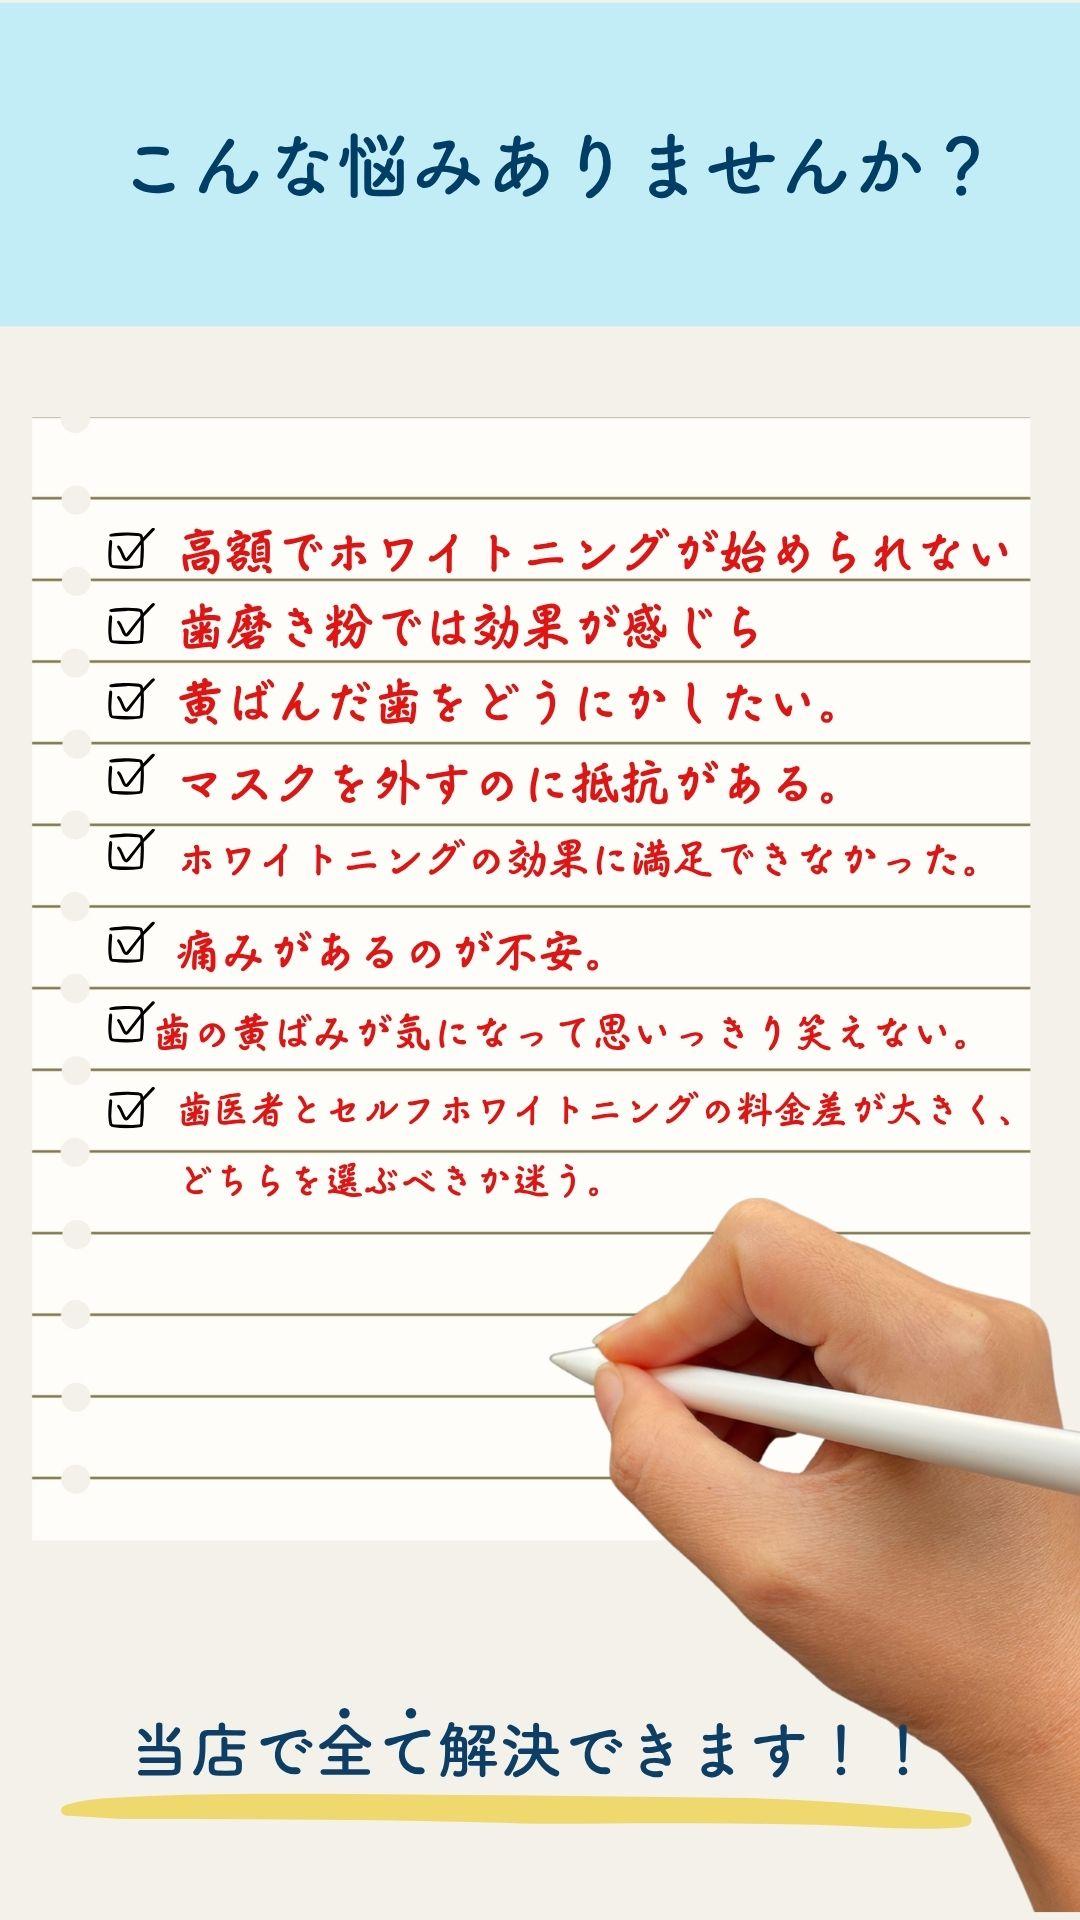 こんな悩みありませんか？
高額でホワイトニングが始められない
歯磨き粉では効果が感じら
黄ばんだ歯をどうにかしたい。
マスクを外すのに抵抗がある。
ホワイトニングの効果に満足できなかった。
痛みがあるのが不安。
歯の黄ばみが気になって思いっきり笑えない。
歯医者とセルフホワイトニングの料金差が大きく、
どちらを選ぶべきか迷う。
当店で全て解決できます！！